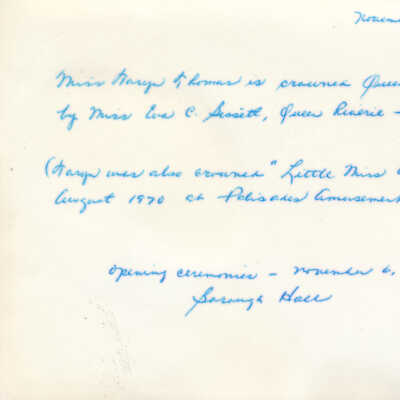 Novem
Miss Karyn Thomas is crowned Quee
by Miss Eva C. Gissett, Queen Reverie -
(Karyn was also crowned "Little Miss
August 1970 at Palisades Amusement
Opening ceremonies - November 6,
Hall